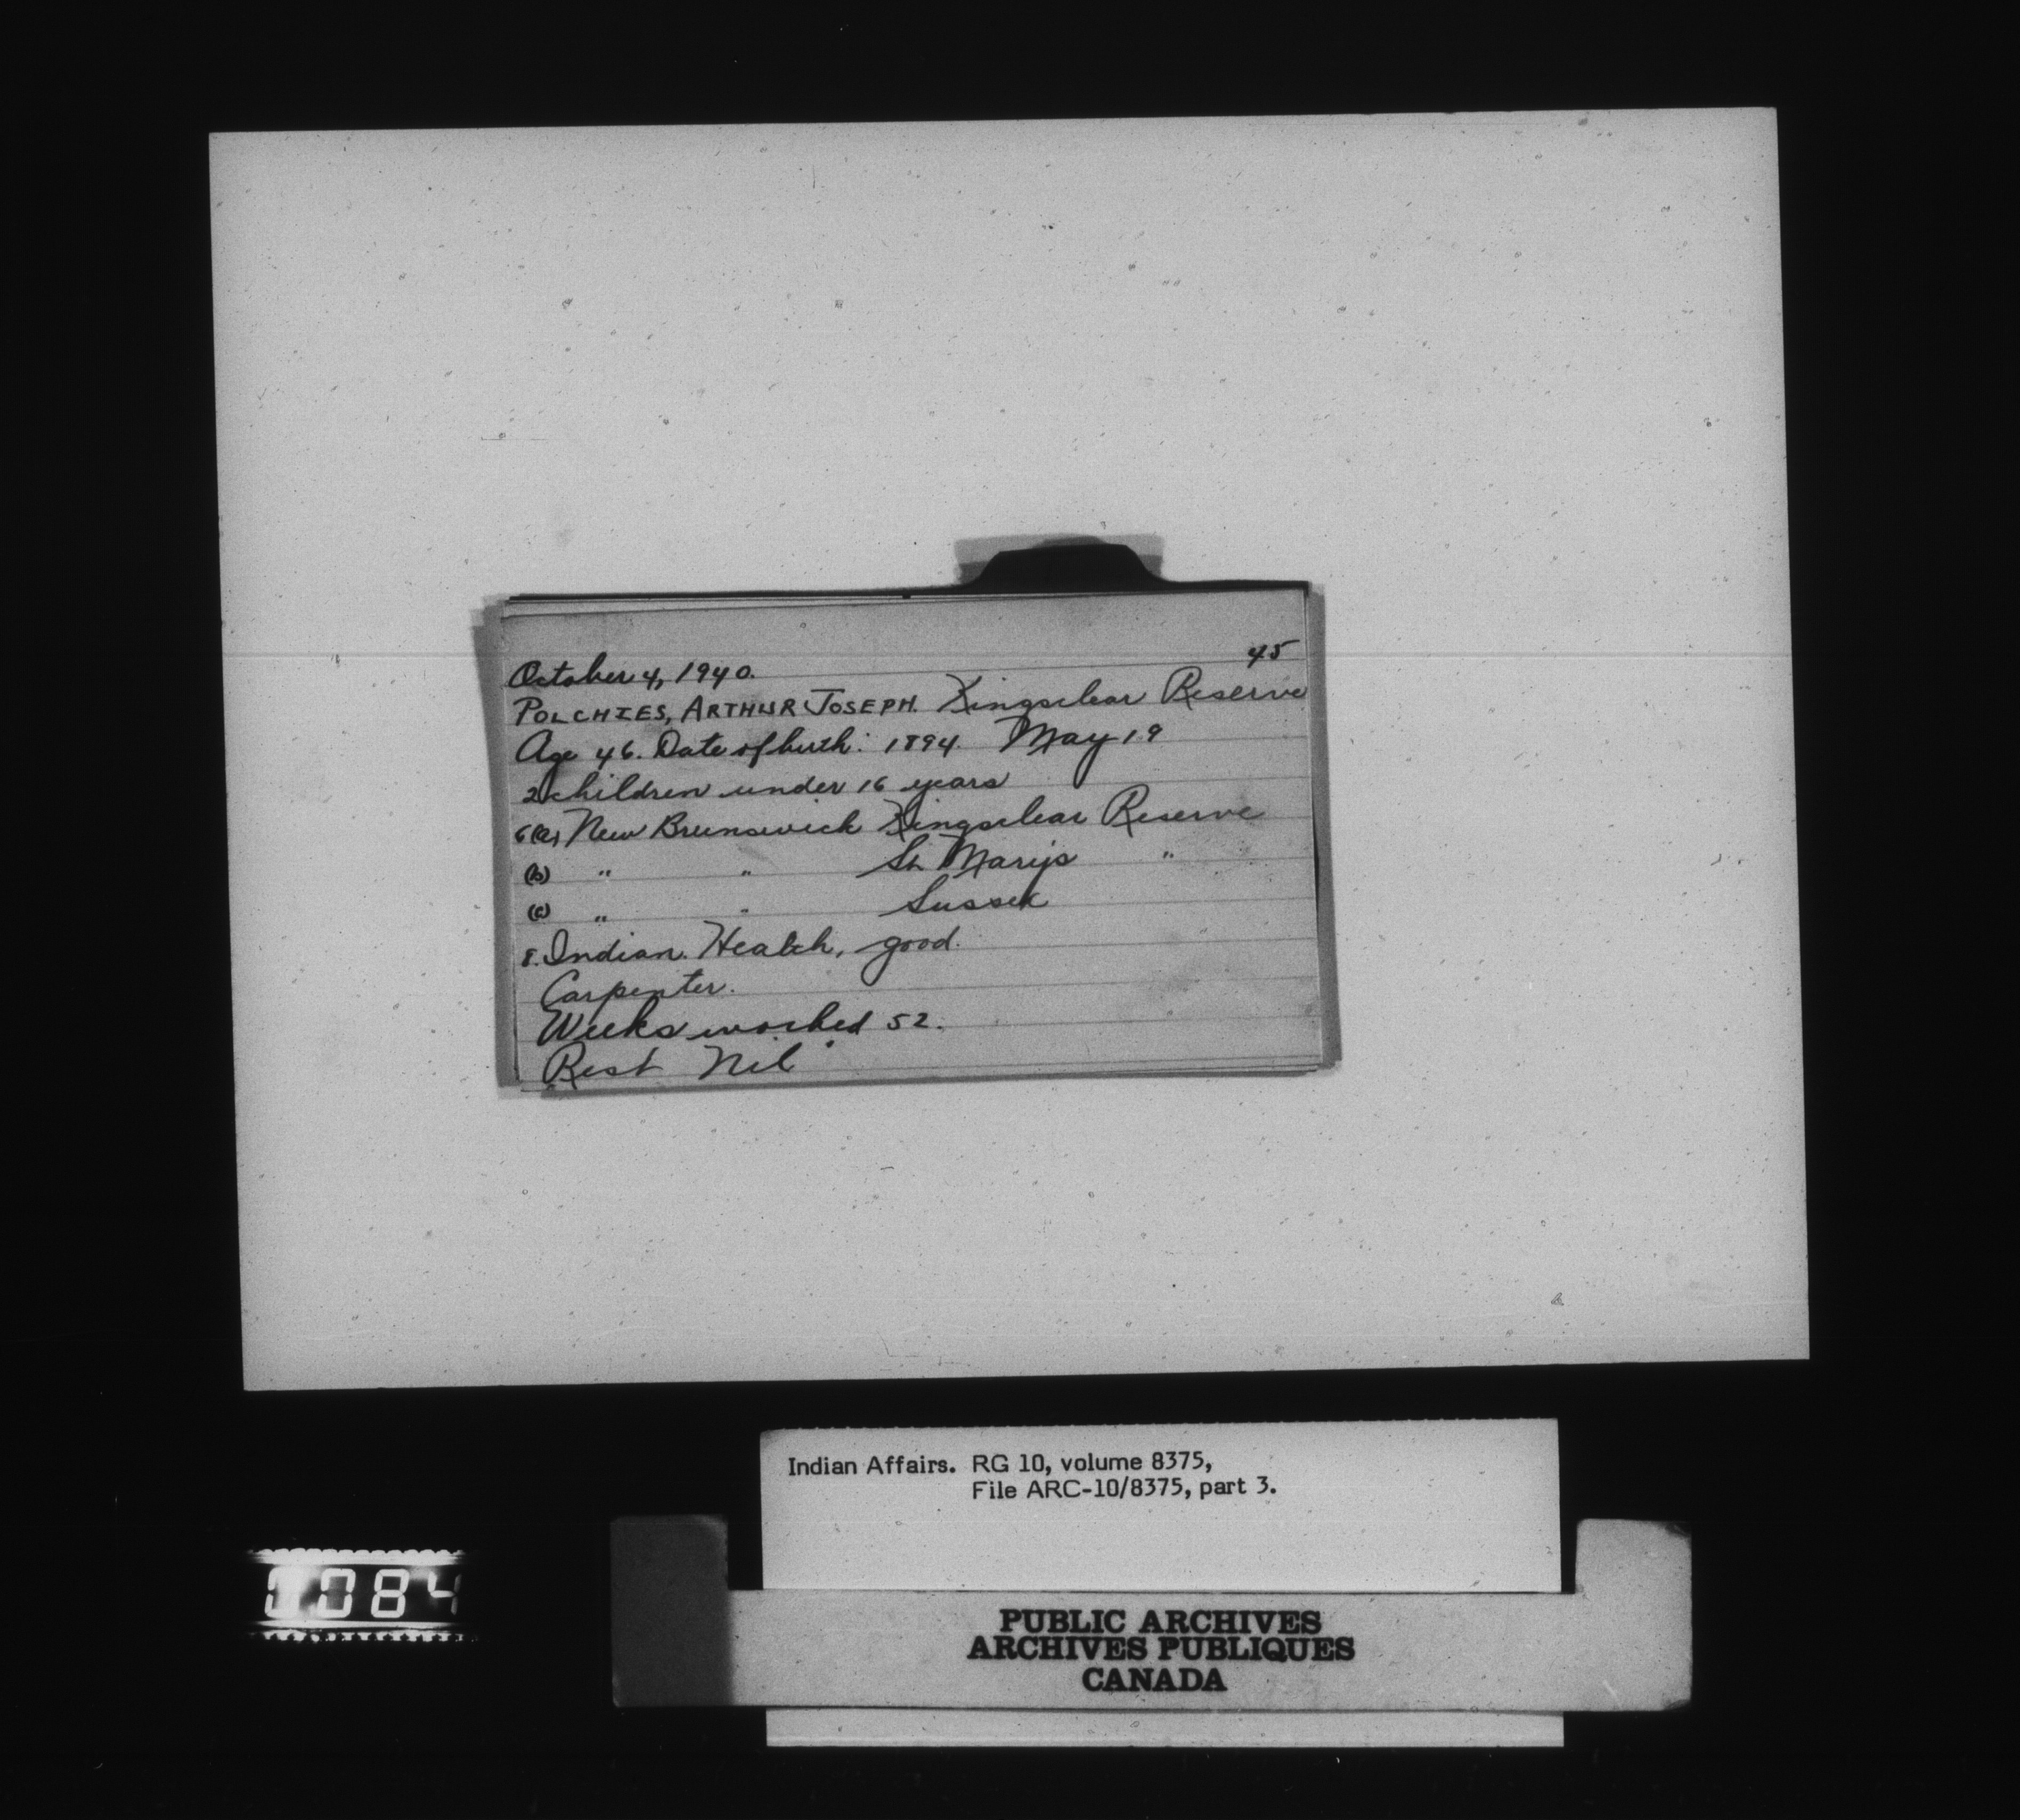 45
October 4, 1940.
POLCHIES, ARTHUR JOSEPH. Kingsclear Reserve
Age 46. Date of birth: 1894. May 19
2 children under 16 years
6(a) New Brunswick Kingsclear Reserve
(b) " " St. Mary's "
(c) " " Sussex
8. Indian. Health, good.
Carpenter.
Weeks worked 52.
Rest Nil
Indian Affairs. RG 10, volume 8375,
File ARC-10/8375, part 3.
0084
PUBLIC ARCHIVES
ARCHIVES PUBLIQUES
CANADA